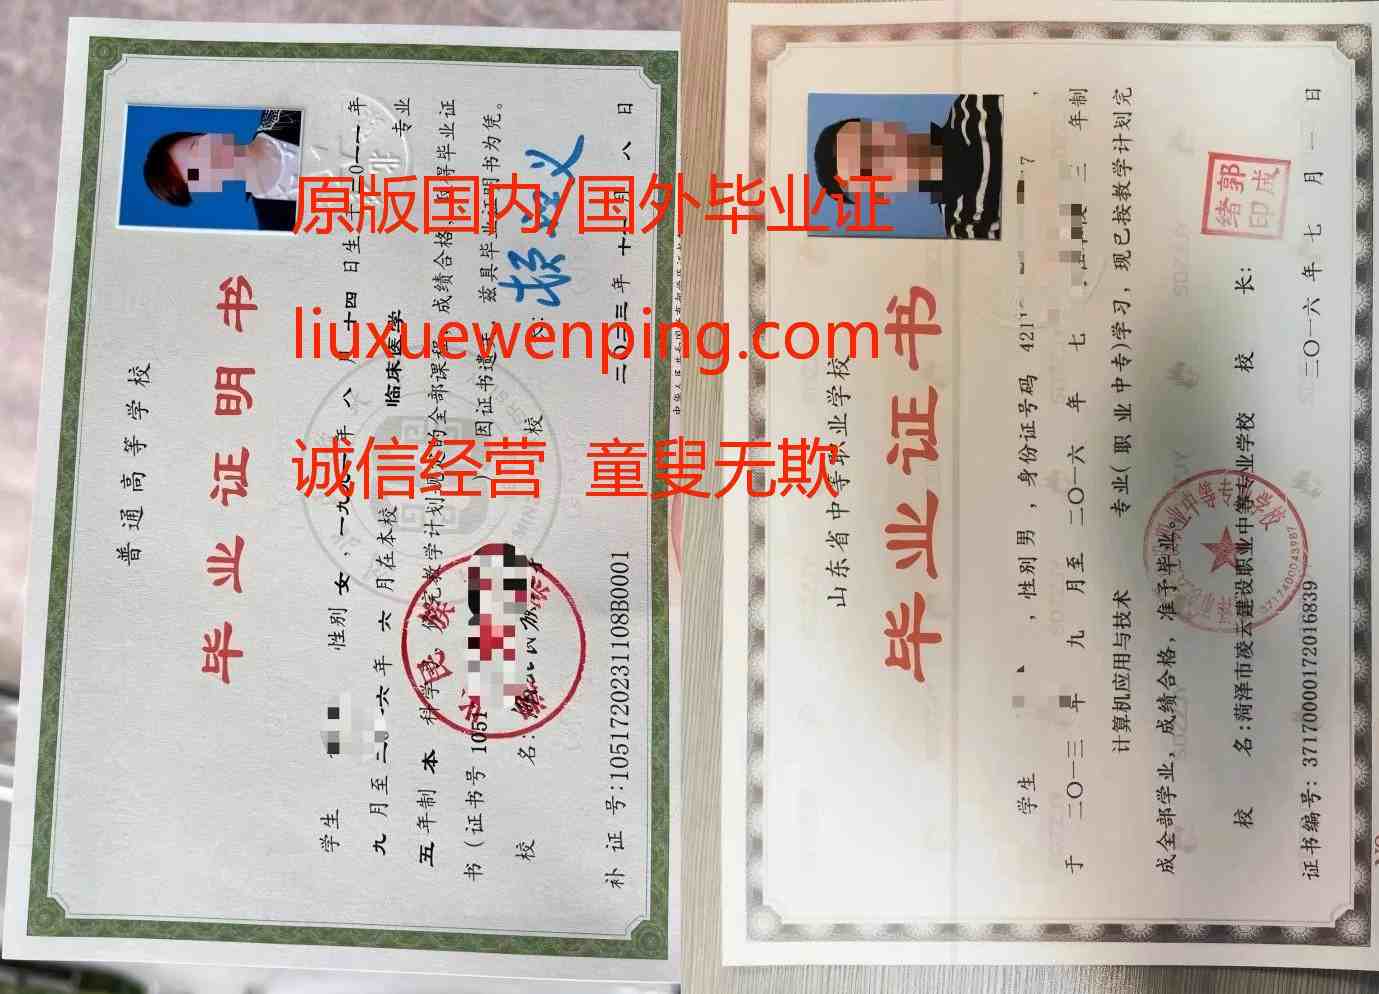 原版国内/国外毕业证
liuxuewenping.com
诚信经营 童叟无欺
普通高等学校
毕业证明书
学生
性别 女,一九九二年 八 月 二十四 日生
九 月至 二〇一六年 六 月在本校 临床医学 专业
五 年制 本 科学
成绩合格
毕业证
书(证书号 1051
因证书遗
兹具毕业证明书为凭。
校 名:
校
补 证 号:1051720231108B0001
二〇二三 年 十 月 八 日
山东省中等职业学校
毕业证书
学生 ,性别 男 ,身份证号码 421
7 ,
于 二〇一三 年 九 月至 二〇一六 年 七
三 年制
计算机应用与技术 专业(职业中专)学习,现已按教学计划完
成全部学业,成绩合格,准予毕业。
校 名:菏泽市凌云建设职业中等专业学校 校 长:
郭成绪印
证书编号: 371700001720168​39
二〇一六 年 七 月 一 日
3717400043987